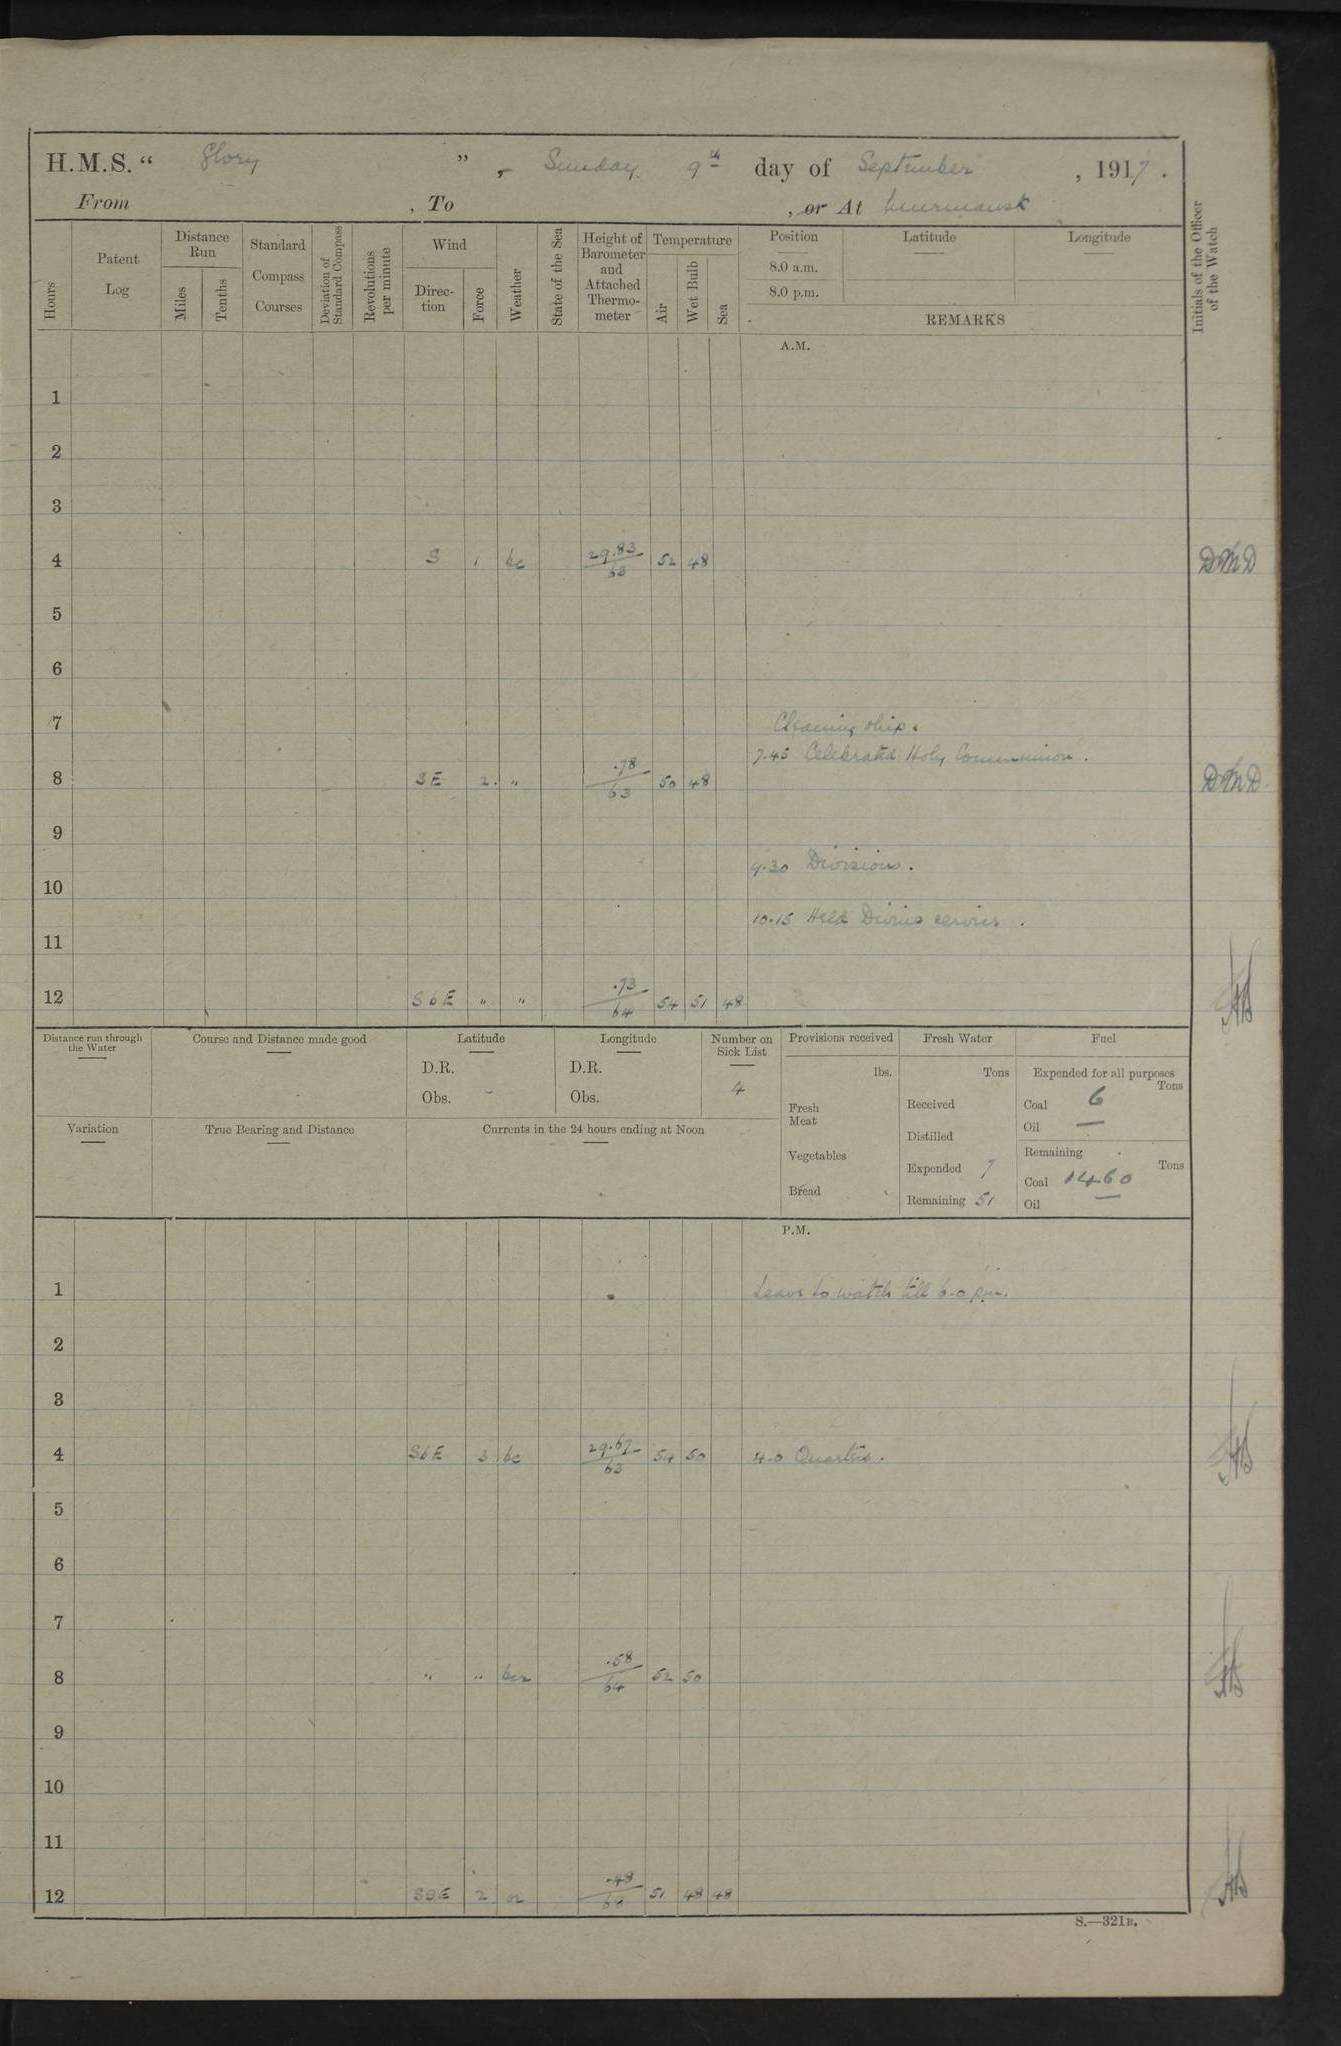 H.M.S. “ Glory ” , Sunday 9th day of September , 1917 .
From , To , or At Murmansk
Hours
Patent Log
Distance Run
Miles
Tenths
Standard Compass Courses
Deviation of Standard Compass
Revolutions per minute
Wind
Direc-tion
Force
Weather
State of the Sea
Height of Barometer and Attached Thermo-meter
Temperature
Air
Wet Bulb
Sea
Position
Latitude
Longitude
8.0 a.m.
8.0 p.m.
REMARKS
Initials of the Officer of the Watch
A.M.
1
2
3
4 S 1 bc 29.83 63 52 48 DMD
5
6
7 Cleaning ship.
7.45 Celebrated Holy Communion.
8 SE 2 " .78 63 50 48 DMD
9
9.30 Divisions.
10
10.15 Held Divine service.
11
12 SbE " " .73 64 54 51 48
Distance run through the Water
Course and Distance made good
Latitude
D.R.
Obs. -
Longitude
D.R.
Obs.
Number on Sick List
4
Provisions received
lbs.
Fresh Meat
Vegetables
Bread
Fresh Water
Tons
Received
Distilled
Expended 7
Remaining 51
Fuel
Expended for all purposes
Tons
Coal 6
Oil —
Remaining
Tons
Coal 1460
Oil —
Variation
True Bearing and Distance
Currents in the 24 hours ending at Noon
P.M.
1 Leave to watch till 6-0 pm.
2
3
4 SbE 3 bc 29.67 63 54 50 4-0 Quarters.
5
6
7
8 " " .58 64 52 50
9
10
11
12 SSE 2 .48 51 48 48
S.—321B.